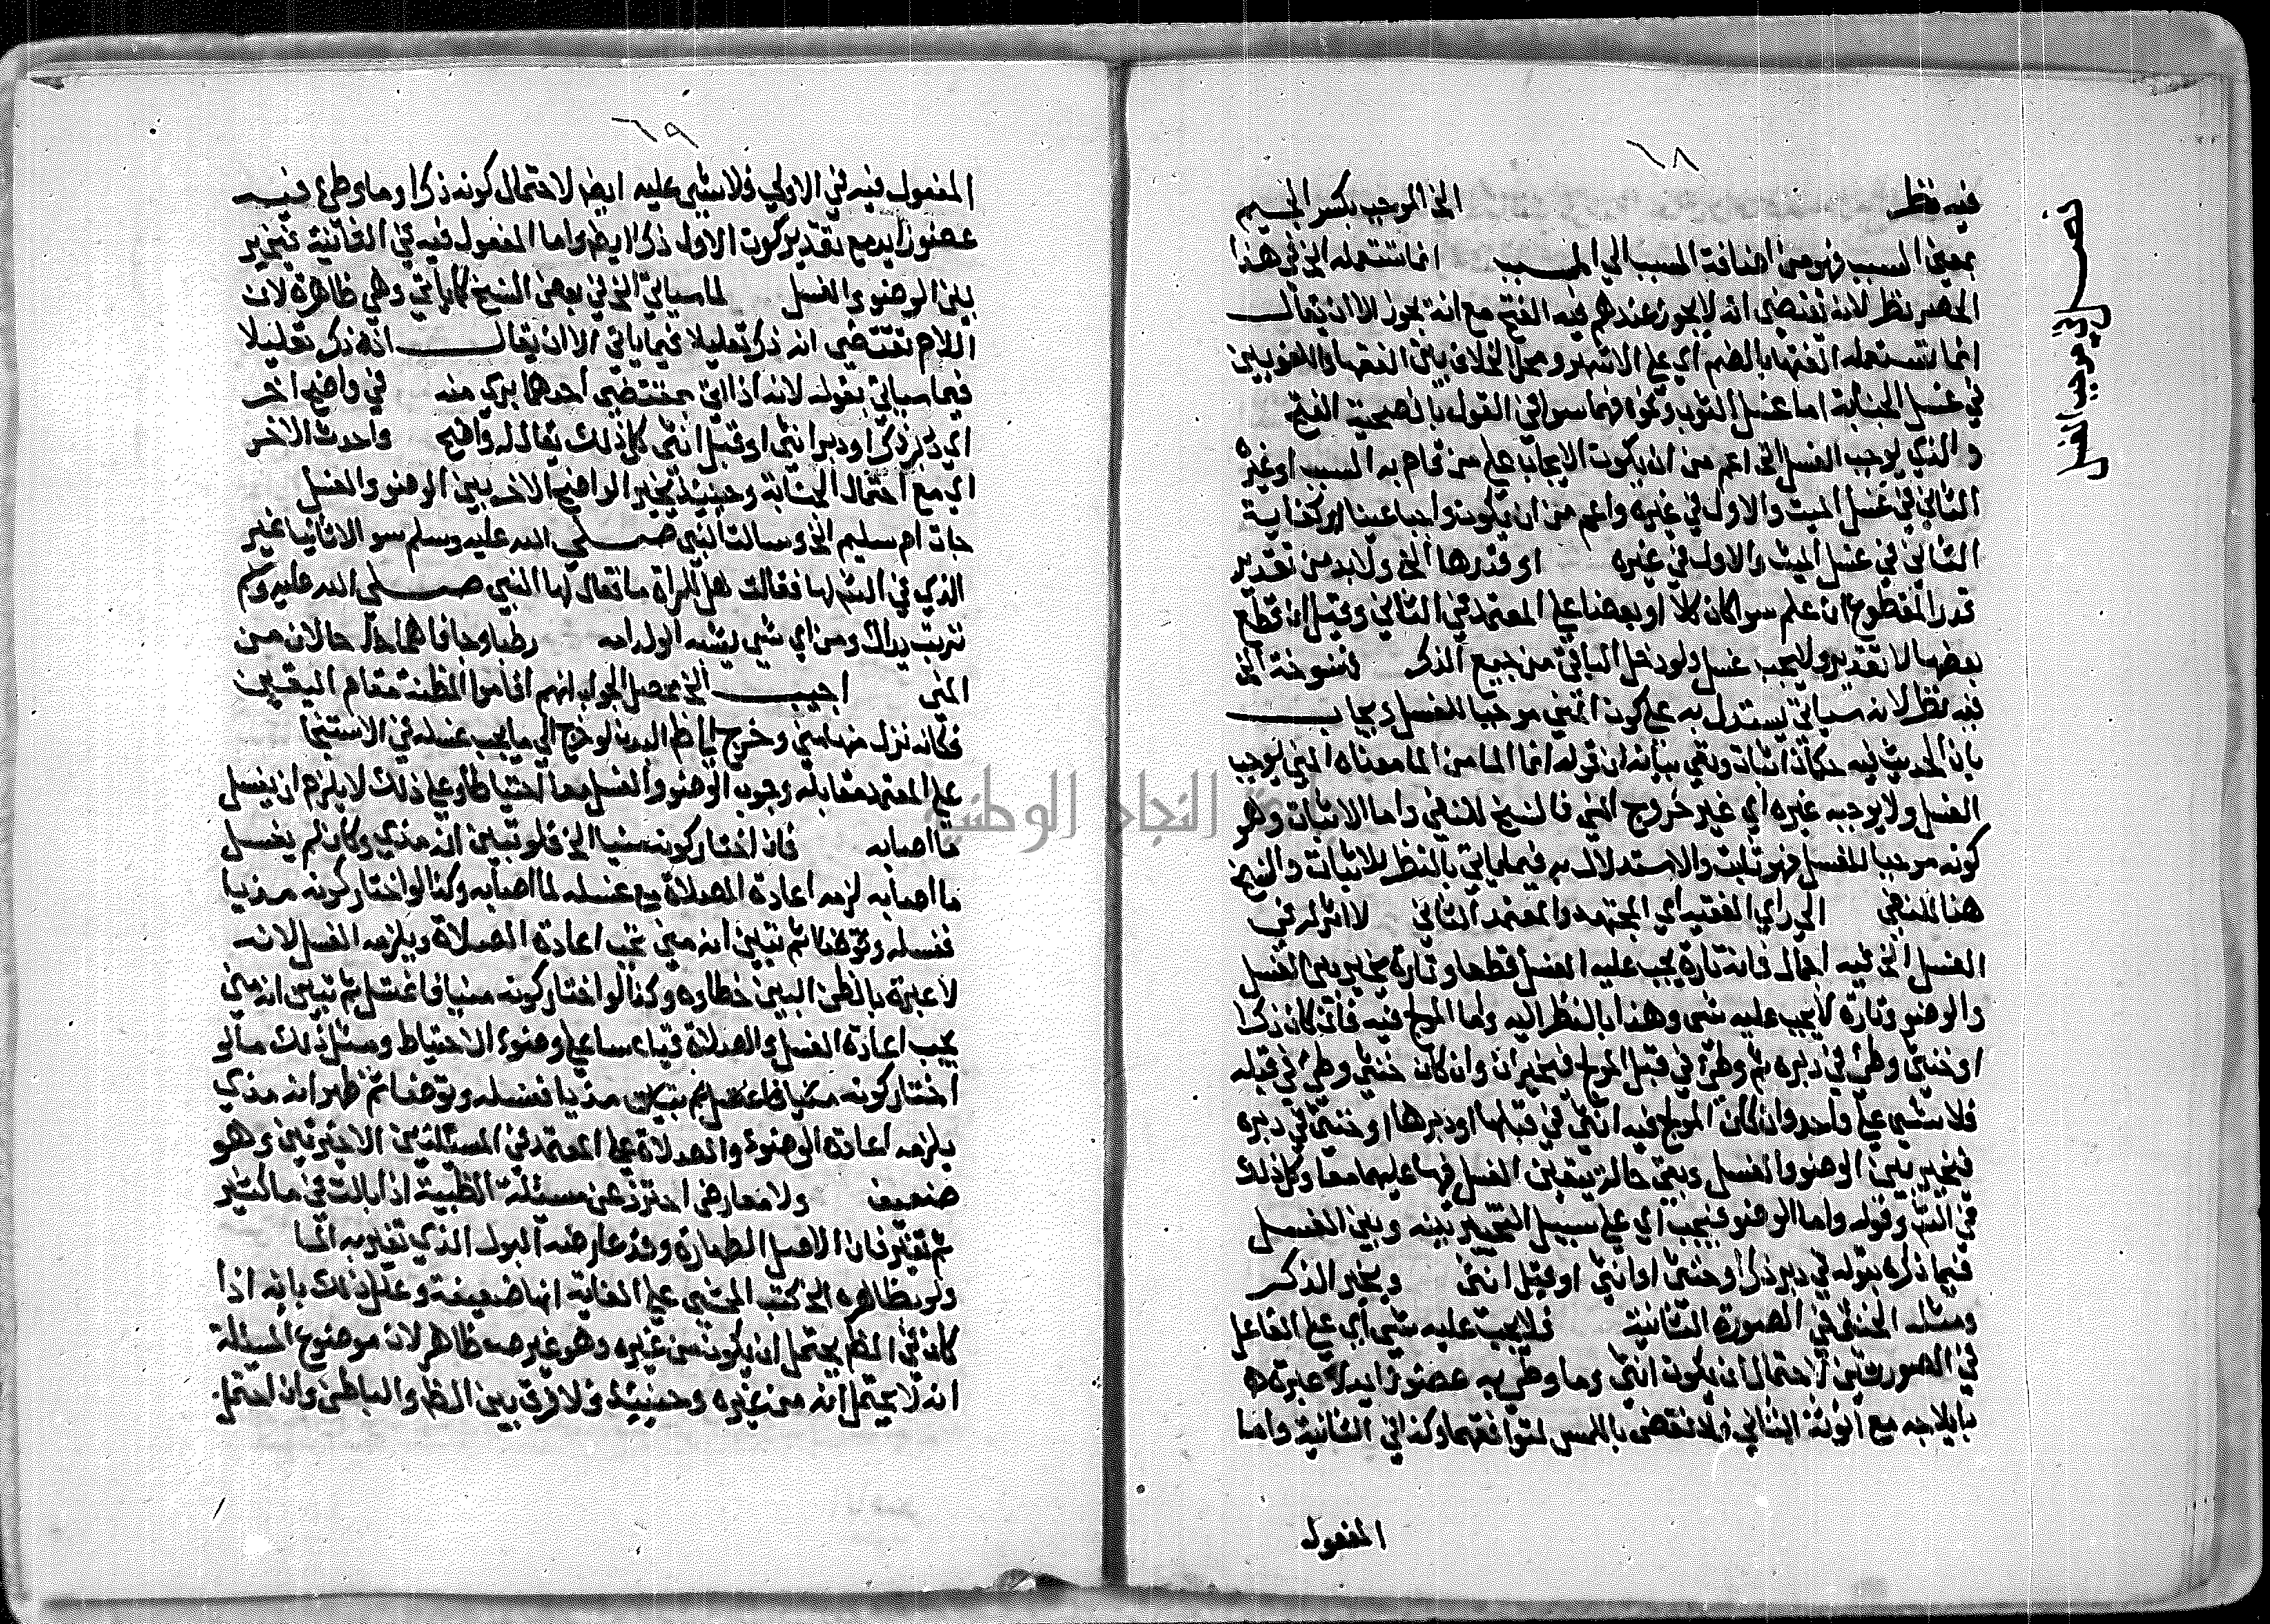 ٦٨
فصل في موجب الغسل
فيه نظر الخ الموجب بكسر الجيم
بمعنى السبب فهو من اضافة المسبب الى السبب انما تستعمله الخ في هذا
الحصر نظر لانه يقتضى انه لا يجوز عندهم فيه الفتح مع انه يجوز الا ان يقال
انما يستعمله الفقها بالضم اي على الاشهر ومحل الخلاف بين الفقها واللغويين
في غسل الجنابة اما غسل الثوب ونحوه فهما سوا في القول بافصحية الفتح
والذي يوجب الغسل الخ اعم من ان يكون الايجاب على من قام به السبب او غيره
الثاني في غسل الميت والاول في غيره واعم من ان يكون واجبا عينا او كفاية
الثاني في غسل الميت والاول في غيره او قدرها الخ ولا بد من تقدير
قدر المقطوع ان علم سوا كان كلا او بعضا على المعتمد في الثاني وقيل ان قطع
بعضها لا تقدير ولا يجب غسل ولو دخل الباقي من جميع الذكر فمنسوخة الخ
فيه نظر لانه سياتي يستدل به على كون المني موجبا للغسل ويجاب
بان الحديث فيه حكمان اثبات ونفي بيانه ان قوله انما الما من الما معناه المني يوجب
الغسل ولا يوجبه غيره اي غير خروج المني فالنسخ للنفي واما الاثبات وهو
كونه موجبا للغسل فهو ثابت والاستدلال به فيما ياتي بالنظر للاثبات والنسخ
هنا للنفي الى راي الفقيه اي المجتهد والمعتمد الثاني لا اثر له في
الغسل الخ فيه اجمال فانه تارة يجب عليه الغسل قطعا وتارة يخير بين الغسل
والوضو وتارة لا يجب عليه شي وهذا بالنظر اليه واما المولج فيه فان كان ذكرا
او خنثى وطئ في دبره ثم وطئ في قبل المولج فيخيران وان كان خنثى وطئ في قبله
فلا شي على واحد وان كان المولج فيه انثى في قبلها او دبرها او خنثى في دبره
فيخير بين الوضو والغسل وبقي حالة يتعين الغسل فيها عليهما معا وكل ذلك
في الش وقوله واما الوضو فيجب اي على سبيل التخيير بينه وبين الغسل
فيما ذكره بقوله في دبر ذكر او خنثى او انثى او قبل انثى ويخير الذكر
ومثله الخنثى في الصورة الثانية فلا يجب عليه شي اي على الفاعل
في الصورتين لاحتمال ان يكون انثى وما وطئ به عضو زايد لا عبرة
بايلاجه مع انوثة الثاني فلا نقض باللمس لتوافقهما وكذا في الثانية واما
المفعول
٦٩
المفعول فيه في الاولى فلا شي عليه ايضا لاحتمال كونه ذكرا وما وطئ فيه
عضو زايد مع تقدير كون الاول ذكرا ايضا واما المفعول فيه في الثانية فيخير
بين الوضو والغسل لما سياتي الخ في بعض النسخ كما ياتي وهي ظاهرة لان
اللام تقتضى انه ذكر تعليلا فيما ياتي الا ان يقال انه ذكر تعليلا
فيما سياتي بقوله لانه اذا اتى بمقتضى احدهما برى منه في واضح اخر
اي دبر ذكر او دبر انثى او قبل انثى كل ذلك يقال له واضح واحدث الاخر
اي مع احتمال الجنابة وحينئذ يخير الواضح الاخر بين الوضو والغسل
جات ام سليم الخ وسالت النبي صلى الله عليه وسلم سوالا ثانيا غير
الذي في الش لها فقالت هل للمراة ما فقال لها النبي صلى الله عليه وسلم
تربت يداك ومن اي شي يشبه الولد امه رطبا وجافا هما حالان من
المني اجيب الخ محصل الجواب انهم اقاموا المظنة مقام اليقين
فكانه نزل منها مني وخرج الى ظاهر البدن لو خرج الى ما يجب غسله في الاستنجا
على المعتمد مقابله وجوب الوضو والغسل معا احتياطا وعلى ذلك لا يلزم ان يغسل
ما اصابه فان اختار كونه منيا الخ فلو تبين انه مذي وكان لم يغسل
ما اصابه لزمه اعادة الصلاة مع غسله لما اصابه وكذا لو اختار كونه مذيا
فغسله وتوضا ثم تبين انه مني تجب اعادة الصلاة ويلزمه الغسل لانه
لا عبرة بالظن البين خطاوه وكذا لو اختار كونه منيا فاغتسل ثم تبين انه مني
يجب اعادة الغسل والصلاة قياسا على وضوء الاحتياط ومثل ذلك ما لو
اختار كونه مذيا فغسله وتوضا ثم ظهر انه مذي
يلزمه اعادة الوضوء والصلاة على المعتمد في المسئلتين الاخيرتين وهو
ضعيف ولا معارض احترز عن مسئلة الظبية اذا بالت في ما كثير
ثم تغير فان الاصل الطهارة وقد عارضه البول الذي تغير به الما
ولو بظاهره الخ كتب المحشى على الغاية انها ضعيفة وعلل ذلك بانه اذا
كان في الظاهر يحتمل ان يكون من غيره وهو غير ظاهر لان موضوع المسئلة
انه لا يحتمل انه من غيره وحينئذ فلا فرق بين الظاهر والباطن وان احتمل